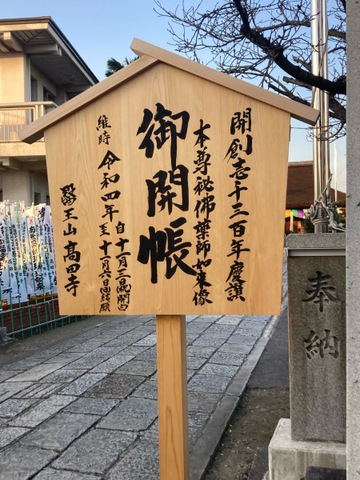 開創壱千三百年慶讃
本尊秘佛薬師如来像
御開帳
維時 令和四年 自十一月三日開白
至十一月六日結願
醫王山 高田寺
奉納